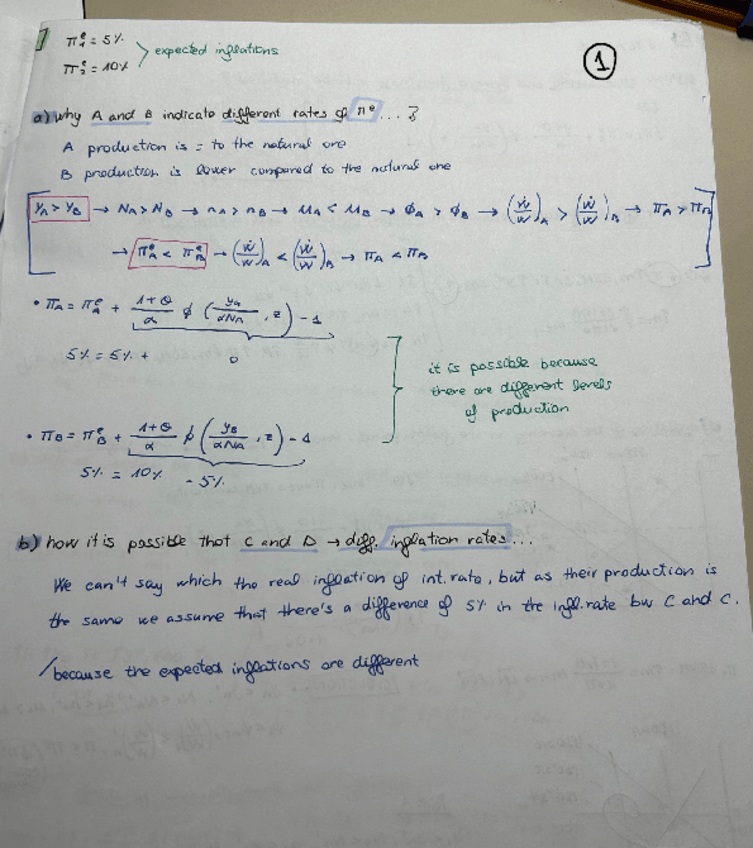 1
π₁ᵉ = 5%
π₂ᵉ = 10%
> expected inflations
①
a) why A and B indicate different rates of πᵉ ... ?
A production is = to the natural one
B production is lower compared to the natural one
Y_A > Y_B → N_A > N_B → n_A > n_B → u_A < u_B → ϕ_A > ϕ_B → (ẇ/w)_A > (ẇ/w)_B → π_A > π_B
→ π_Aᵉ < π_Bᵉ → (ẇ/w)_A < (ẇ/w)_B → π_A < π_B
• π_A = π_Aᵉ + (1+θ)/α ϕ (y_A/αN_A , z) - 1
5% = 5% + 0
it is possible because
there are different levels
of production
• π_B = π_Bᵉ + (1+θ)/α ϕ (y_B/αN_A , z) - 1
5% = 10% - 5%
b) how it is possible that C and D → diff. inflation rates ...
We can't say which the real inflation of int. rate, but as their production is
the same we assume that there's a difference of 5% in the infl. rate bw C and C.
/ because the expected inflations are different